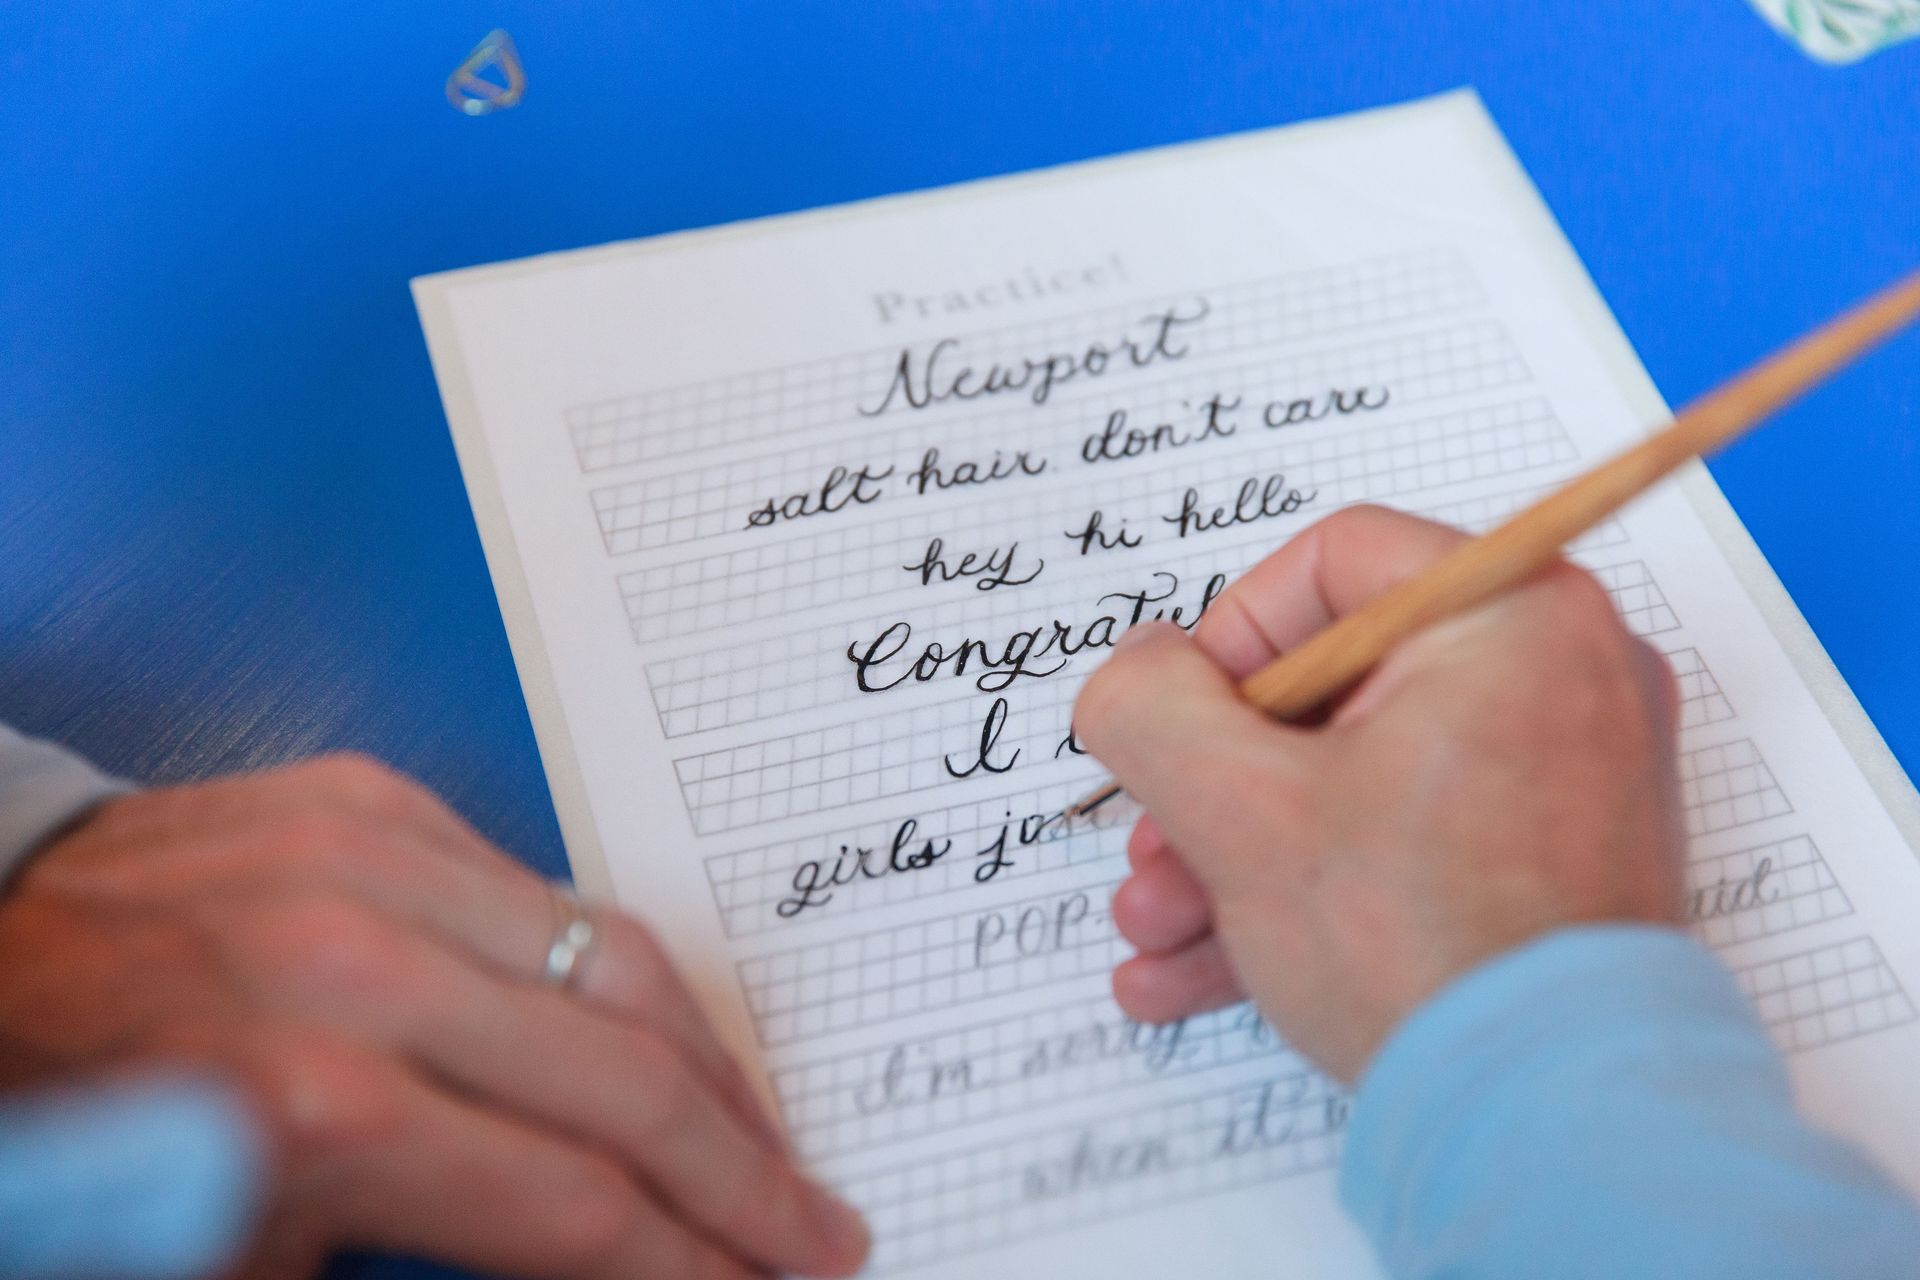 Practice!
Newport
salt hair don't care
hey hi hello
Congratul
I
girls jus
POP-
I'm sorry
when it